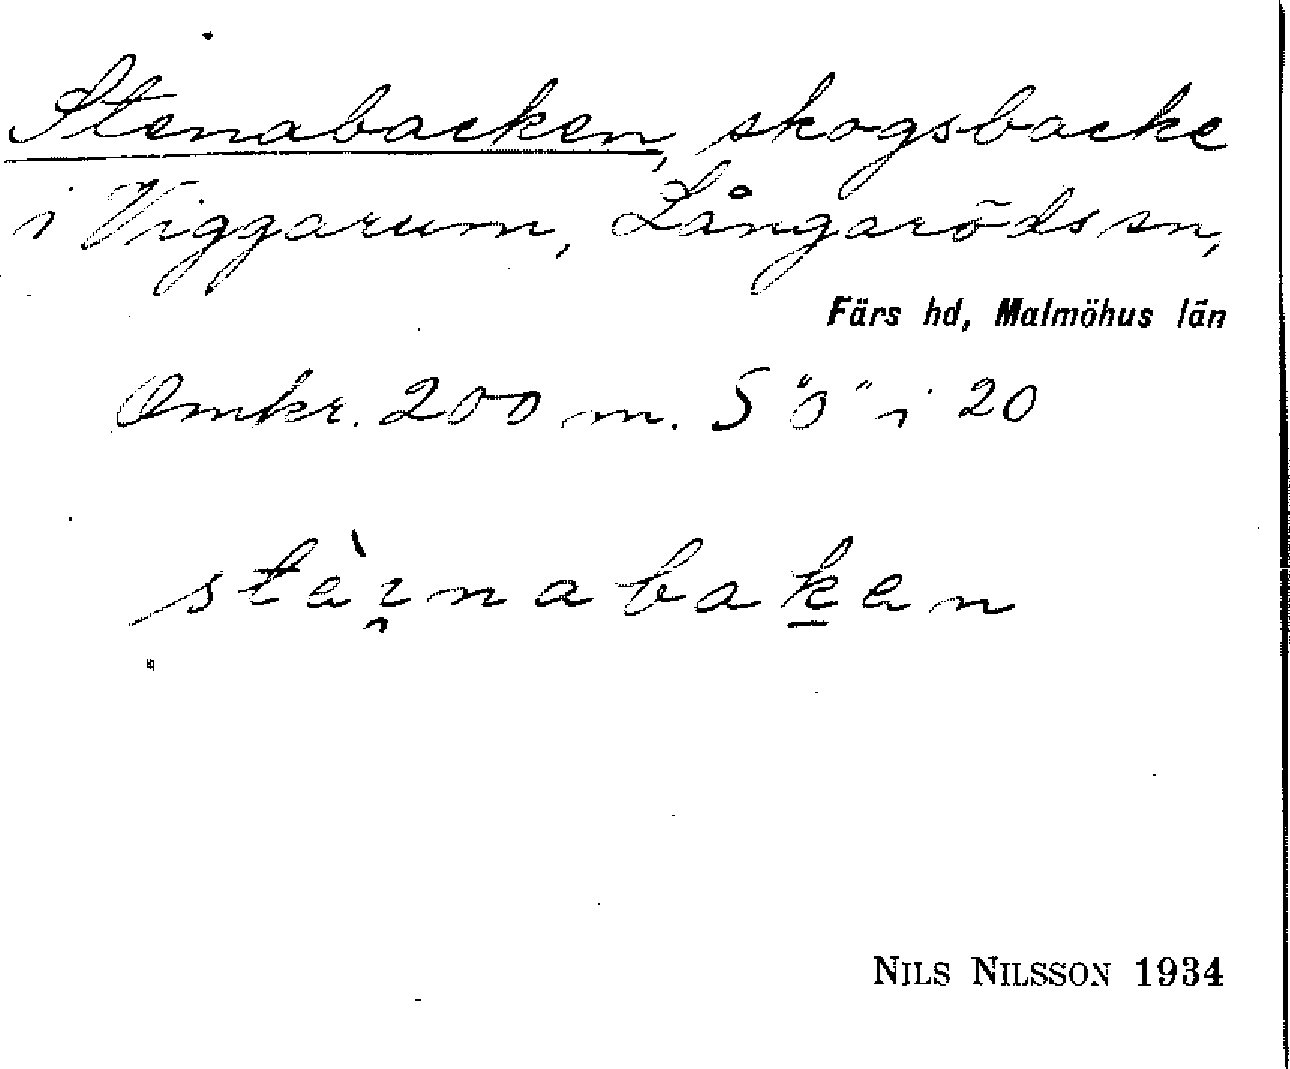 Stenabacken, skogsbacke
i Viggarum, Långaröds sn,
Färs hd, Malmöhus län
Omkr. 200 m. S "ö" i 20
NILS NILSSON 1934